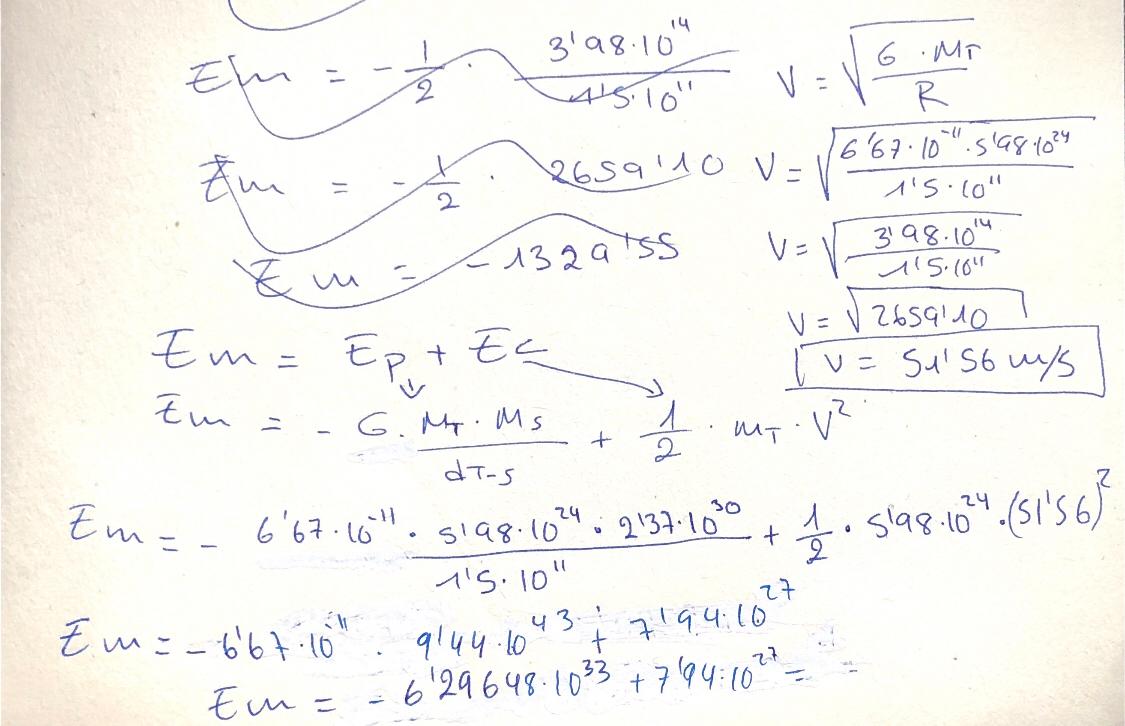 Em = - 1/2 · 3'98·10^14 / 1'5·10^11
Em = - 1/2 · 2659'10
Em = -1329'55
V = √(G · MT / R)
V = √(6'67·10^-11 · 5'98·10^24 / 1'5·10^11)
V = √(3'98·10^14 / 1'5·10^11)
V = √2659'10
V = 51'56 m/s
Em = Ep + Ec
Em = - G · MT · Ms / dT-s + 1/2 · mT · V^2
Em = - 6'67·10^-11 · 5'98·10^24 · 2'37·10^30 / 1'5·10^11 + 1/2 · 5'98·10^24 · (51'56)^2
Em = - 6'67·10^-11 · 9'44·10^43 + 7'94·10^27
Em = - 6'29648·10^33 + 7'94·10^27 =